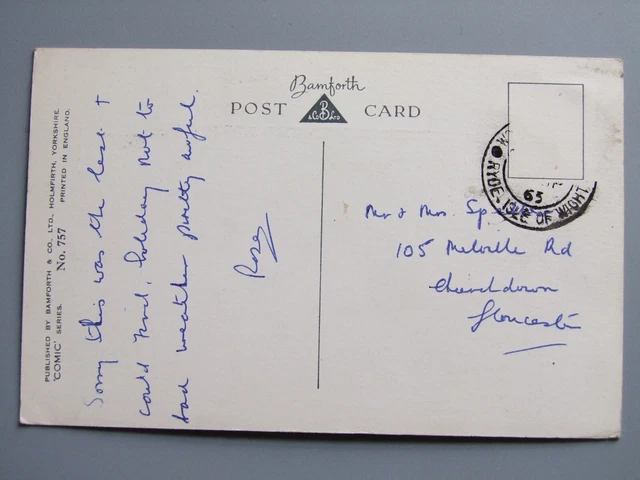 Bamforth
POST CARD
B
& Co. Ltd
PUBLISHED BY BAMFORTH & CO. LTD., HOLMFIRTH, YORKSHIRE.
'COMIC' SERIES. No. 757 PRINTED IN ENGLAND.
Sorry this was the best I
could find, holiday not to
bad weather pretty awful.
Rose
Mr & Mrs. Sp
105 Melville Rd
Churchdown
Gloucester
RYDE-ISLE OF WIGHT
65